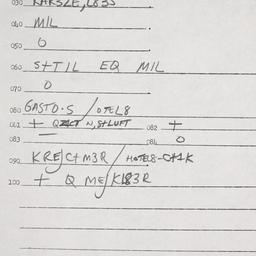 030 KARSZE, L83S
040 MIL
050 0
060 S+TIL EQ MIL
070 0
080 GASTO.S / OTEL8
081 + N, S+LUFT 082 +
083 — 084 0
090 KREJC+M3R / HOTE8-C+1K
100 + Q MEJKL83R